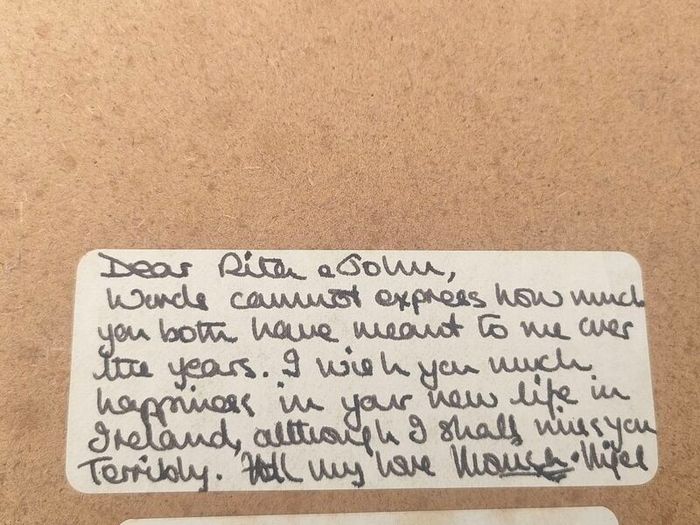 Dear Rita & John,
Words cannot express how much
you both have meant to me over
the years. I wish you much
happiness in your new life in
Ireland, although I shall miss you
Terribly. All my love